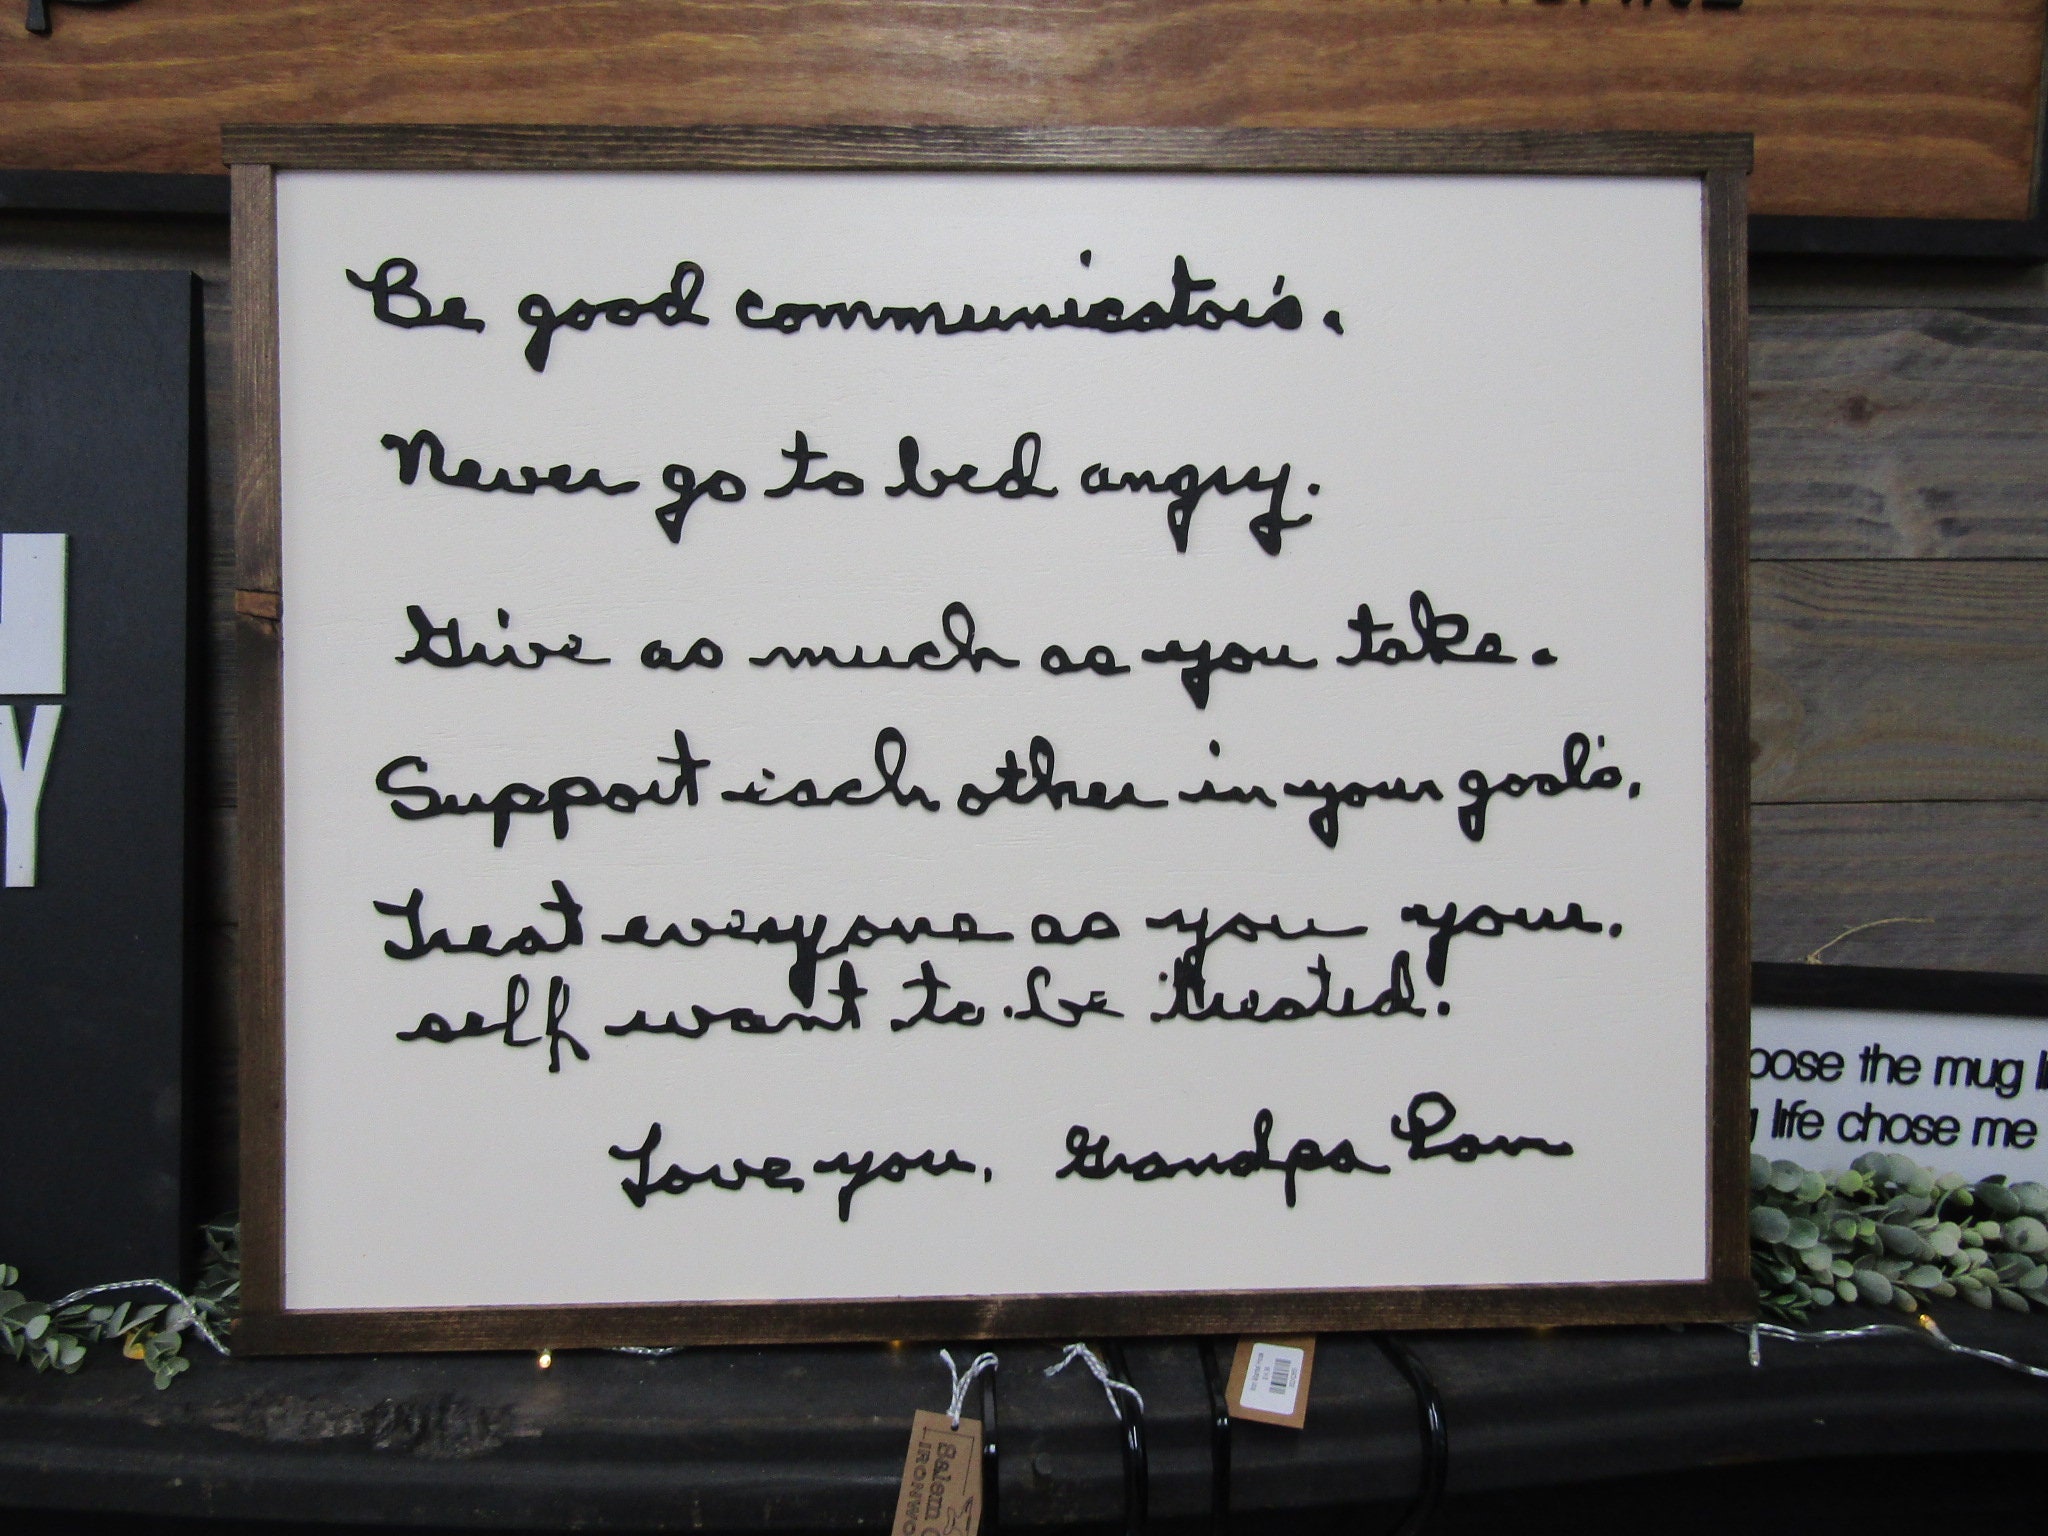 Be good communicator's.
Never go to bed angry.
Give as much as you take.
Support each other in your goal's.
Treat everyone as you your.
self want to be treated.
Love you, Grandpa
Y
oose the mug
life chose me
Salem
IRONWO